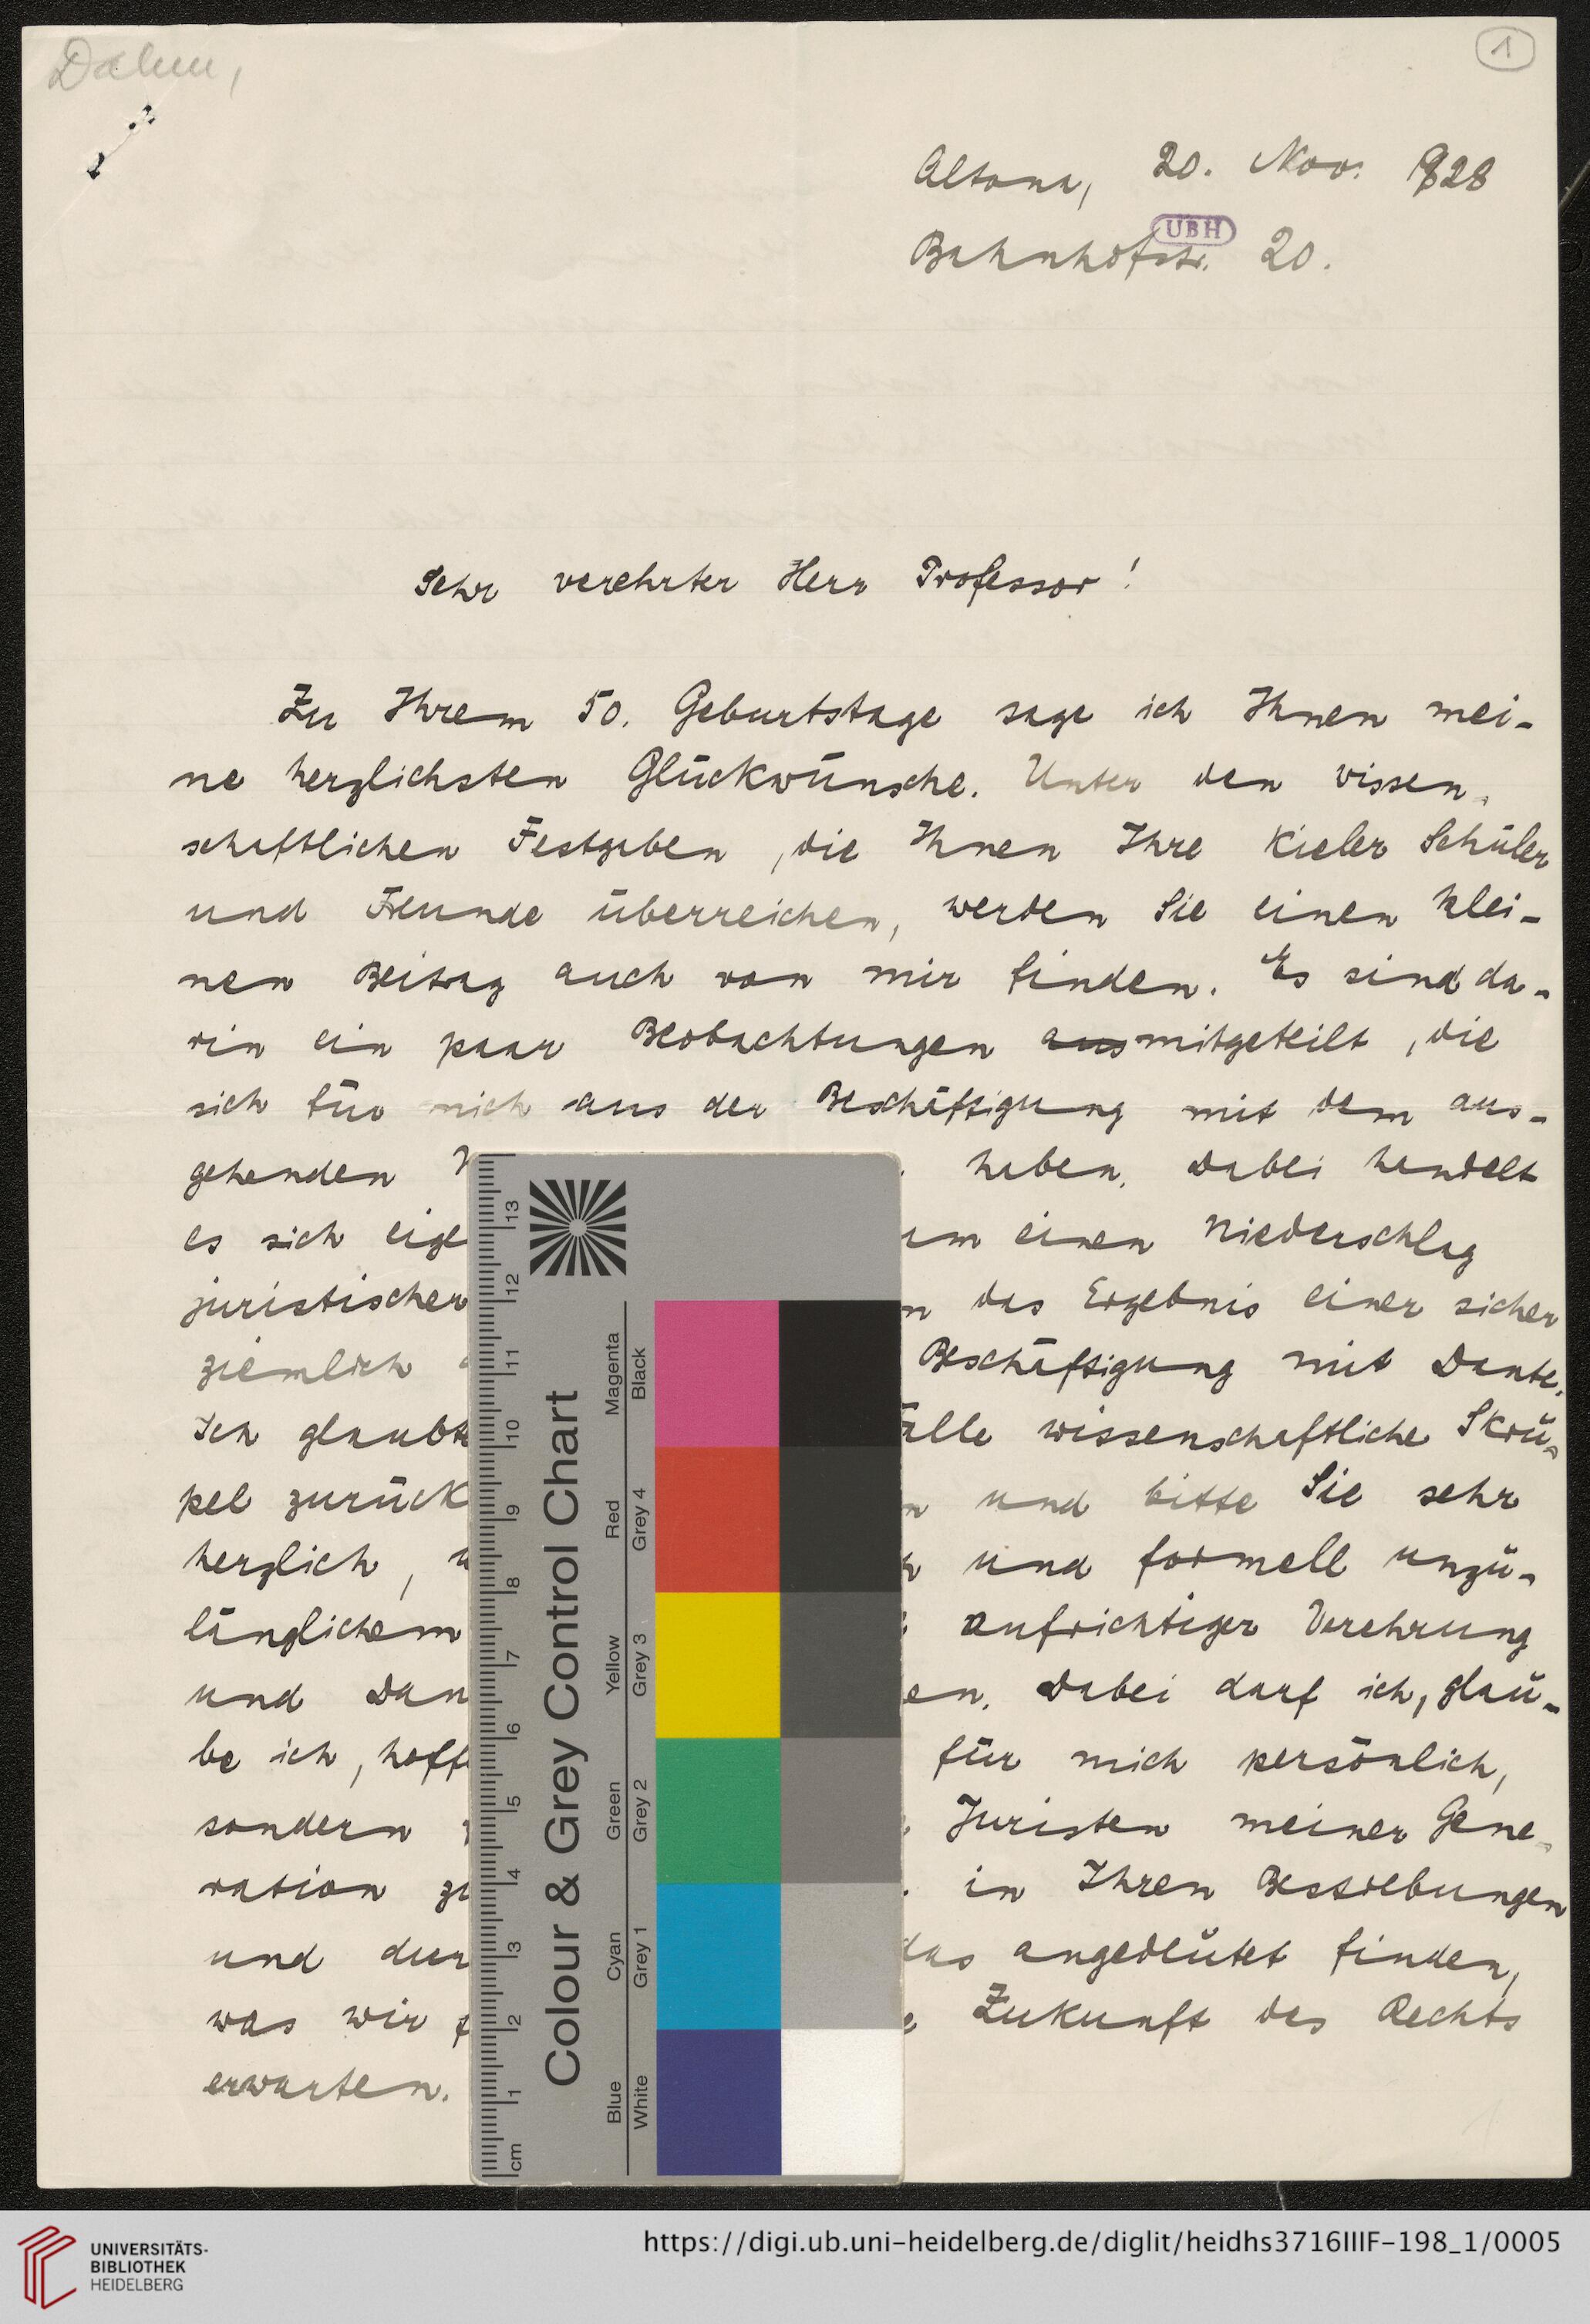 Dahm,
1
Altona, 20. Nov. 1928
UBH
Bahnhofstr. 20.
Sehr verehrter Herr Professor!
Zu Ihrem 50. Geburtstage sage ich Ihnen mei-
ne herzlichsten Glückwünsche. Unter den wissen-
schaftlichen Festgaben, die Ihnen Ihre Kieler Schüler
und Freunde überreichen, werden Sie einen klei-
nen Beitrag auch von mir finden. Es sind da-
rin ein paar Beobachtungen aus mitgeteilt, die
sich für mich aus der Beschäftigung mit dem aus-
gehenden haben. Dabei handelt
es sich eige um einen Niederschlag
juristischer das Ergebnis einer sicher
ziemlich Beschäftigung mit Dante.
Ich glaubte alle wissenschaftliche Skrü-
pel zurück und bitte Sie sehr
herzlich, und formell unzu-
länglichem aufrichtiger Verehrung
und Dan en. Dabei darf ich, glau-
be ich, hoff für mich persönlich,
sondern Juristen meiner Gene-
ration in Ihren Bestrebungen
und dur das angedeutet finden,
was wir Zukunft des Rechts
erwarten.
Colour & Grey Control Chart
Magenta Red Yellow Green Cyan Blue
Black Grey 4 Grey 3 Grey 2 Grey 1 White
13 12 11 10 9 8 7 6 5 4 3 2 1 cm
UNIVERSITÄTS-
BIBLIOTHEK
HEIDELBERG
https://digi.ub.uni-heidelberg.de/diglit/heidhs3716IIIF-198_1/0005